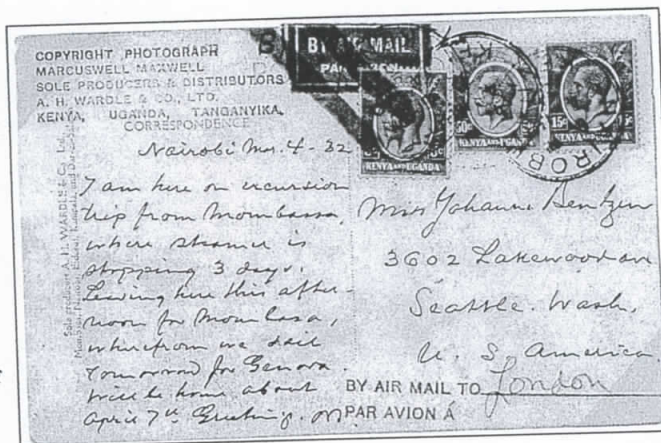 COPYRIGHT PHOTOGRAPH
MARCUSWELL MAXWELL
SOLE PRODUCERS & DISTRIBUTORS
A. H. WARDLE & CO., LTD.
KENYA, UGANDA, TANGANYIKA.
CORRESPONDENCE
BY AIR MAIL
PAR AVION
KENYA AND UGANDA
50c
KENYA AND UGANDA
15c
KENYA AND UGANDA
NAIROBI
Nairobi Mar. 4 - 32
I am here on excursion
trip from Mombassa,
where steamer is
stopping 3 days.
Leaving here this after-
noon for Mombasa,
wherefrom we sail
tomorrow for Genova.
Will be home about
April 7th Greeting.
Sole producers A. H. WARDLE & Co., Ltd.
Miss Johanne Bentzen
3602 Lakewood ave
Seattle. Wash.
U. S. America
BY AIR MAIL TO London
PAR AVION Á